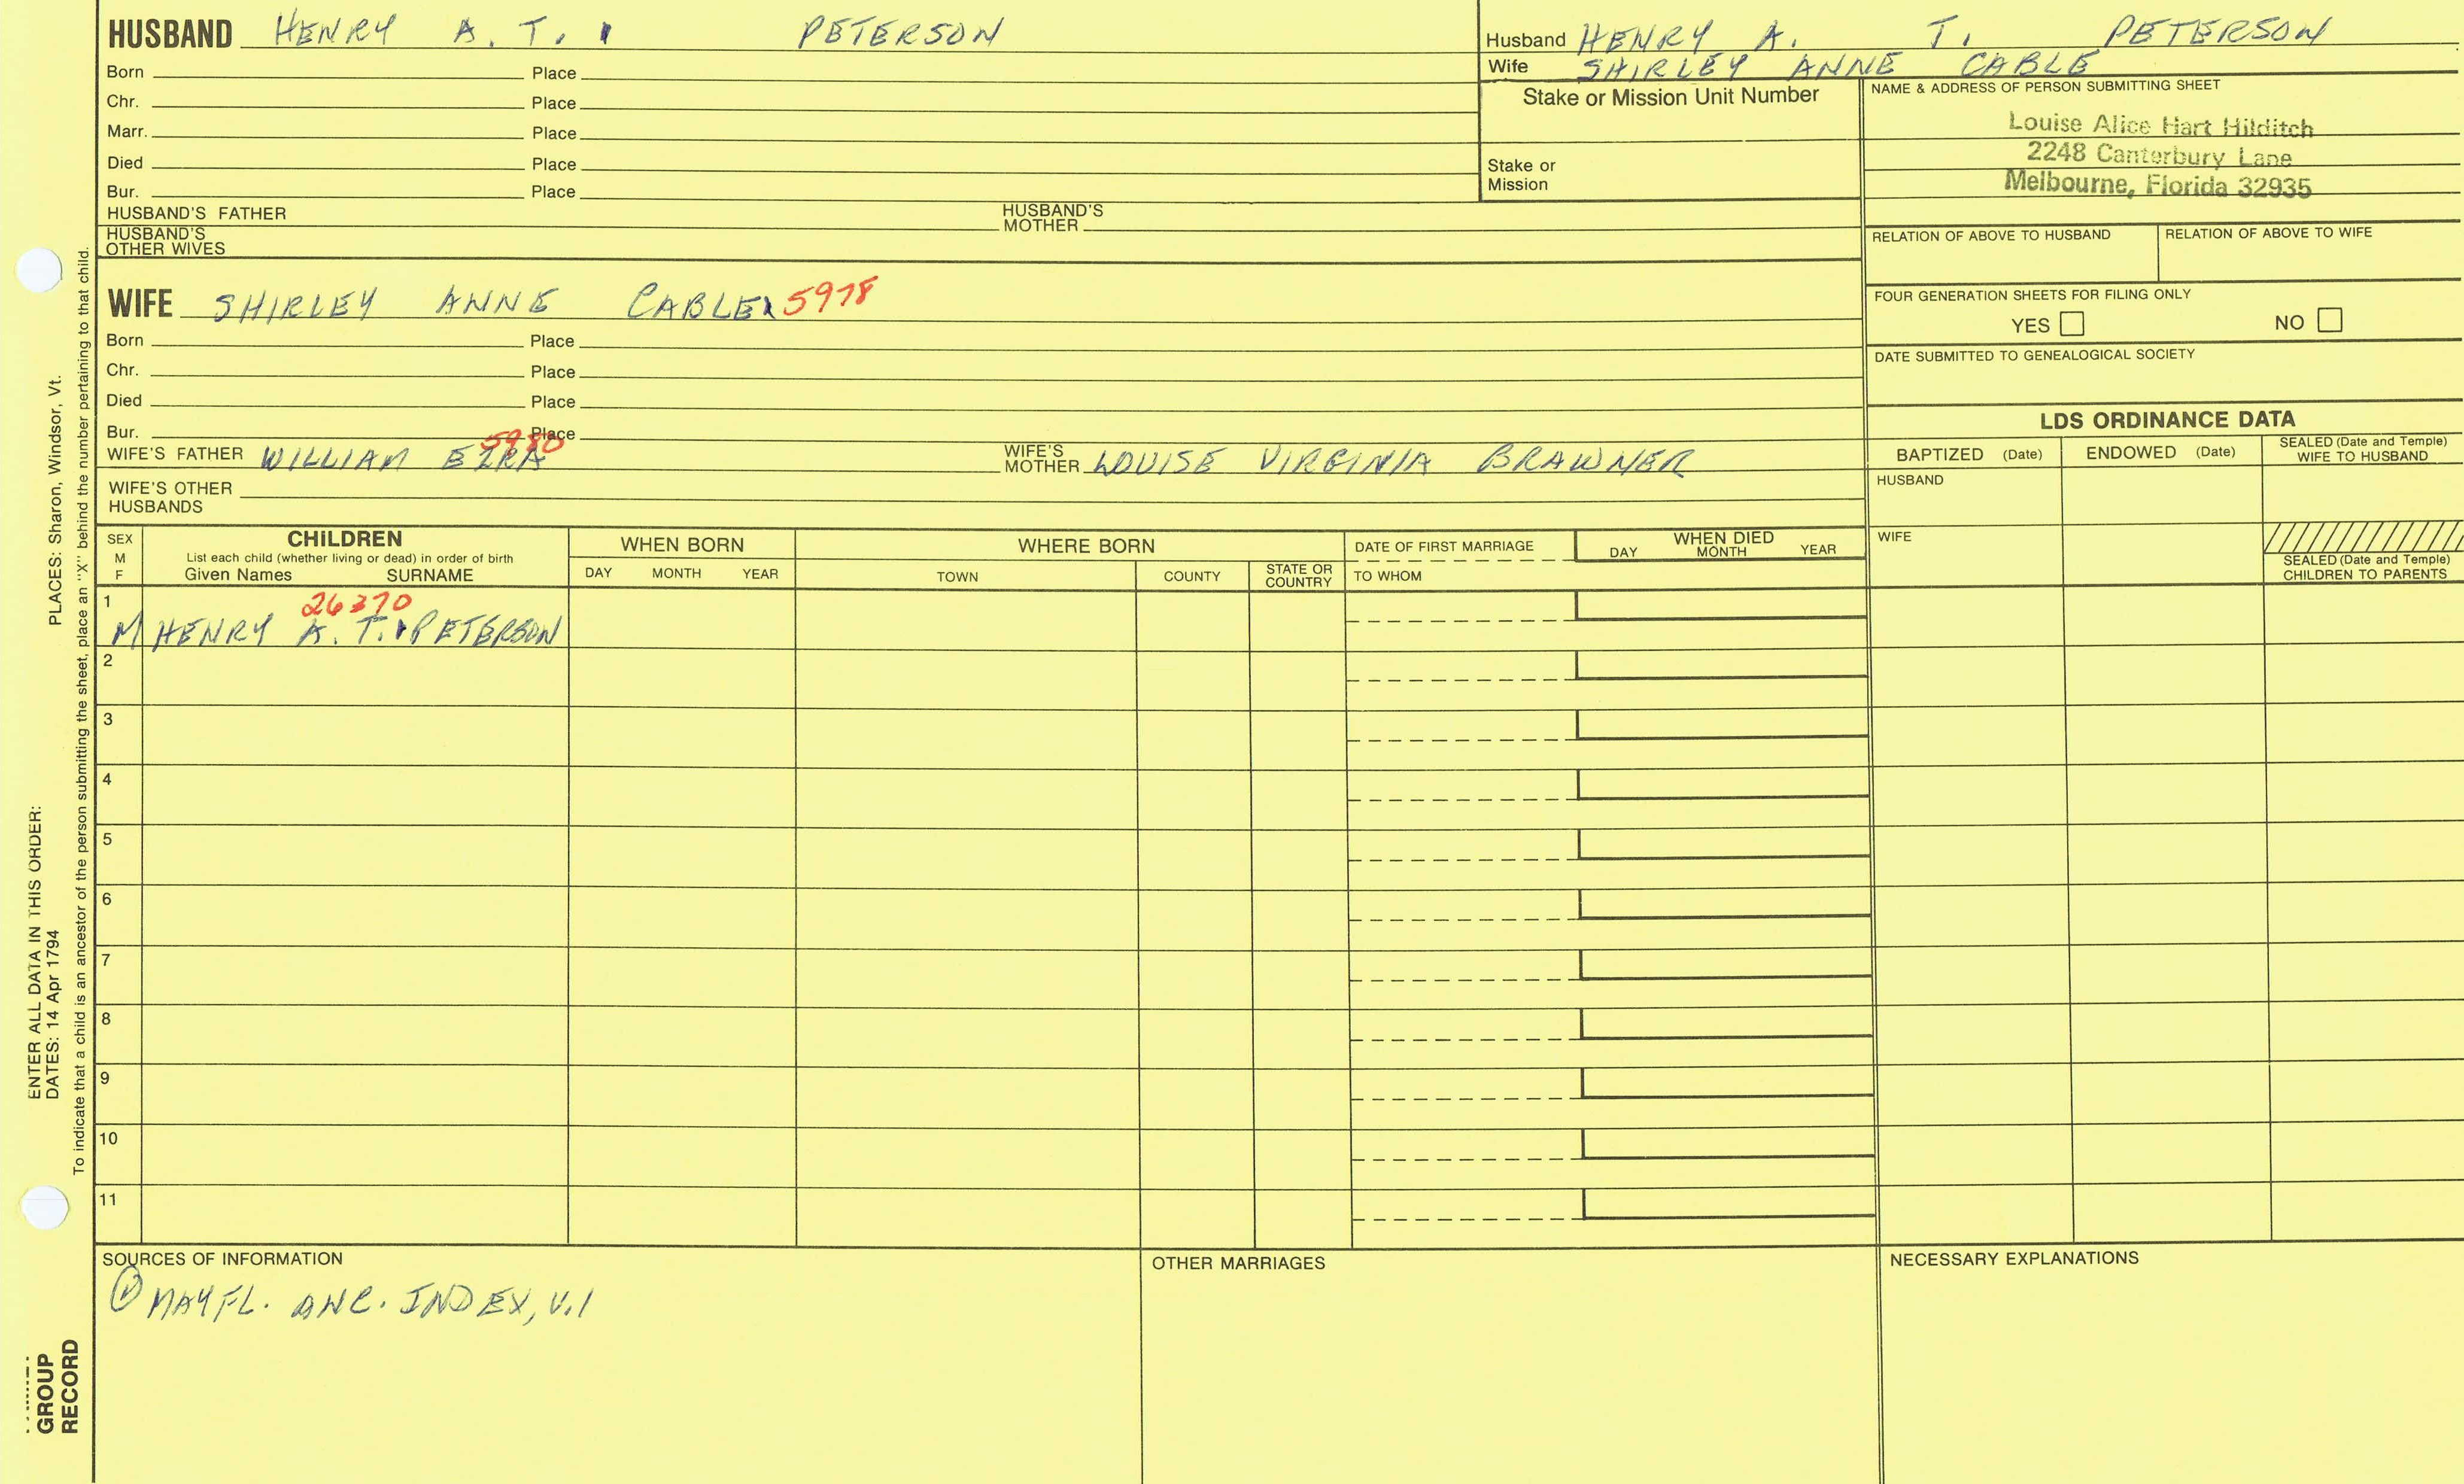 HUSBAND HENRY A. T. PETERSON
Born Place
Chr. Place
Marr. Place
Died Place
Bur. Place
HUSBAND'S FATHER HUSBAND'S MOTHER
HUSBAND'S OTHER WIVES
Husband HENRY A. T. PETERSON
Wife SHIRLEY ANNE CABLE
Stake or Mission Unit Number
Stake or Mission
NAME & ADDRESS OF PERSON SUBMITTING SHEET
Louise Alice Hart Hilditch
2248 Canterbury Lane
Melbourne, Florida 32935
RELATION OF ABOVE TO HUSBAND RELATION OF ABOVE TO WIFE
FOUR GENERATION SHEETS FOR FILING ONLY
YES NO
DATE SUBMITTED TO GENEALOGICAL SOCIETY
WIFE SHIRLEY ANNE CABLE 5978
Born Place
Chr. Place
Died Place
Bur. Place
5980
WIFE'S FATHER WILLIAM EZRA WIFE'S MOTHER LOUISE VIRGINIA BRAWNER
WIFE'S OTHER HUSBANDS
LDS ORDINANCE DATA
BAPTIZED (Date) ENDOWED (Date) SEALED (Date and Temple) WIFE TO HUSBAND
HUSBAND
WIFE
SEALED (Date and Temple) CHILDREN TO PARENTS
SEX M F
CHILDREN
List each child (whether living or dead) in order of birth
Given Names SURNAME
WHEN BORN
DAY MONTH YEAR
WHERE BORN
TOWN COUNTY STATE OR COUNTRY
DATE OF FIRST MARRIAGE
TO WHOM
WHEN DIED
DAY MONTH YEAR
1 26370
M HENRY A. T. PETERSON
2
3
4
5
6
7
8
9
10
11
SOURCES OF INFORMATION
① MAYFL. ANC. INDEX, V.1
OTHER MARRIAGES
NECESSARY EXPLANATIONS
ENTER ALL DATA IN THIS ORDER:
DATES: 14 Apr 1794 PLACES: Sharon, Windsor, Vt.
To indicate that a child is an ancestor of the person submitting the sheet, place an "X" behind the number pertaining to that child.
GROUP
RECORD